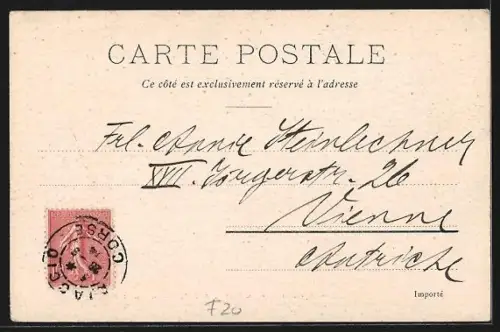 CARTE POSTALE
Ce côté est exclusivement réservé à l'adresse
Frl. Annie Steinlechner
XVII. Jörgerstr. 26
Vienne
Autriche
AJACCIO
CORSE
Importé
F20